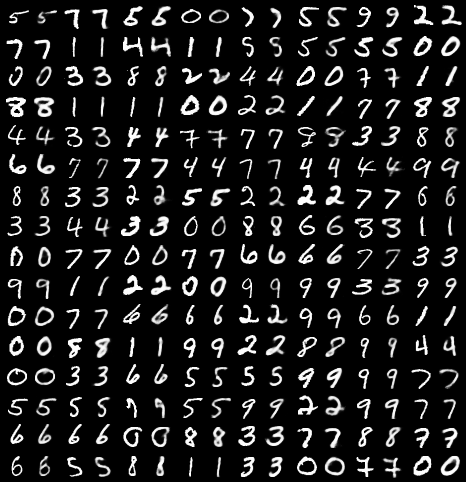 5 5 7 7 5 5 0 0 7 7 5 5 9 9 2 2
7 7 1 1 4 4 1 1 5 5 5 5 5 5 0 0
0 0 3 3 8 8 2 2 4 4 0 0 7 7 1 1
8 8 1 1 1 1 0 0 2 2 1 1 7 7 8 8
4 4 3 3 4 4 7 7 7 7 8 8 3 3 8 8
6 6 7 7 7 7 4 4 7 7 4 4 4 4 9 9
8 8 3 3 2 2 5 5 2 2 2 2 7 7 6 6
3 3 4 4 3 3 0 0 8 8 6 6 3 3 1 1
0 0 7 7 0 0 7 7 6 6 6 6 7 7 3 3
9 9 1 1 2 2 0 0 9 9 9 9 3 3 9 9
0 0 7 7 6 6 6 6 2 2 9 9 6 6 1 1
0 0 8 8 1 1 9 9 2 2 8 8 9 9 4 4
0 0 3 3 6 6 5 5 5 5 9 9 9 9 7 7
5 5 5 5 5 5 9 9 2 2 9 9 7 7
6 6 6 6 0 0 8 8 3 3 7 7 8 8 7 7
6 6 5 5 8 8 1 1 3 3 0 0 7 7 0 0